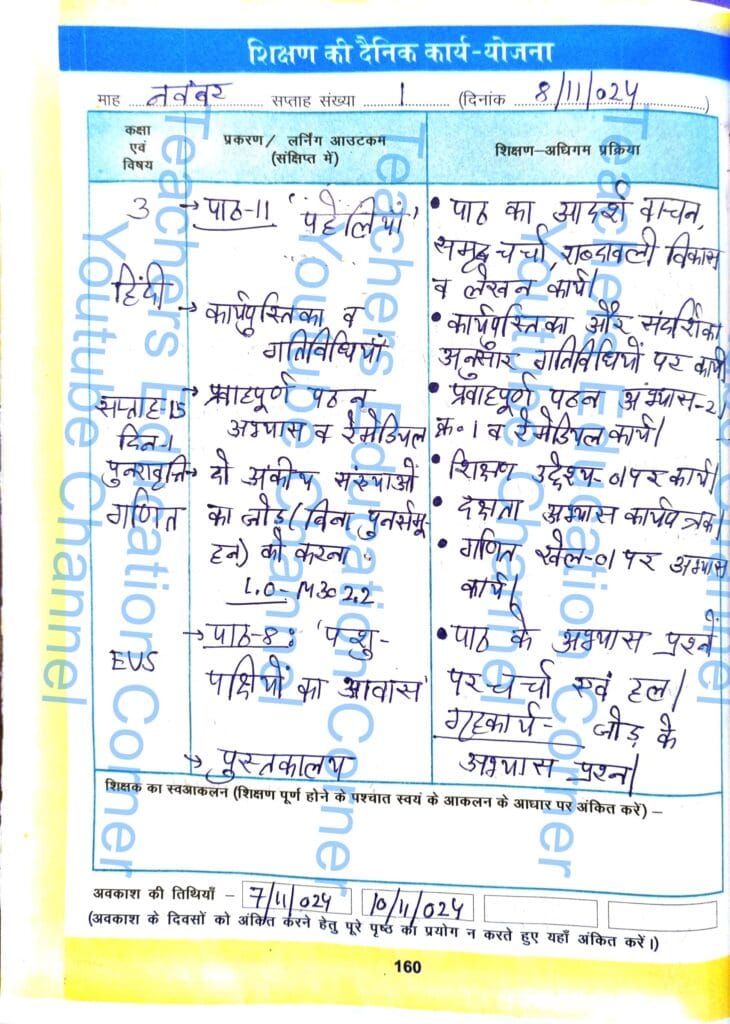 शिक्षण की दैनिक कार्य-योजना
माह नवंबर सप्ताह संख्या 1 (दिनांक 8/11/024)
कक्षा एवं विषय
प्रकरण/ लर्निंग आउटकम (संक्षिप्त में)
शिक्षण-अधिगम प्रक्रिया
3
हिंदी
सप्ताह-15
दिन-1
पुनरावृत्ति
गणित
EVS
→ पाठ-11 'पहेलियाँ'
→ कार्यपुस्तिका व
गतिविधियाँ
→ प्रवाहपूर्ण पठन
अभ्यास व रेमेडियल
→ दो अंकीय संख्याओं
का जोड़ (बिना पुनर्समू-
हन) को करना
L.O-M302.2
→ पाठ-8: 'पशु-
पक्षियों का आवास'
→ पुस्तकालय
• पाठ का आदर्श वाचन,
समूह चर्चा, शब्दावली विकास
व लेखन कार्य।
• कार्यपुस्तिका और संदर्शिका
अनुसार गतिविधियों पर कार्य
• प्रवाहपूर्ण पठन अभ्यास-2।
क्र.-1 व रेमेडियल कार्य।
• शिक्षण उद्देश्य-01 पर कार्य।
• दक्षता अभ्यास कार्यपत्रक।
• गणित खेल-01 पर अभ्यास
कार्य।
• पाठ के अभ्यास प्रश्नों
पर चर्चा एवं हल।
गृहकार्य- जोड़ के
अभ्यास प्रश्न।
शिक्षक का स्वआकलन (शिक्षण पूर्ण होने के पश्चात स्वयं के आकलन के आधार पर अंकित करें) –
अवकाश की तिथियाँ – 7/11/024 10/11/024
(अवकाश के दिवसों को अंकित करने हेतु पूरे पृष्ठ का प्रयोग न करते हुए यहाँ अंकित करें।)
160
Teachers Education Corner
Youtube Channel
Teachers Education Corner
Youtube Channel
Teachers Education Corner
Youtube Channel